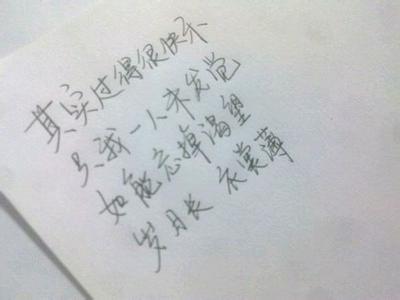 其实过得很快乐
只我一人未发觉
如能忘掉渴望
岁月长 衣裳薄